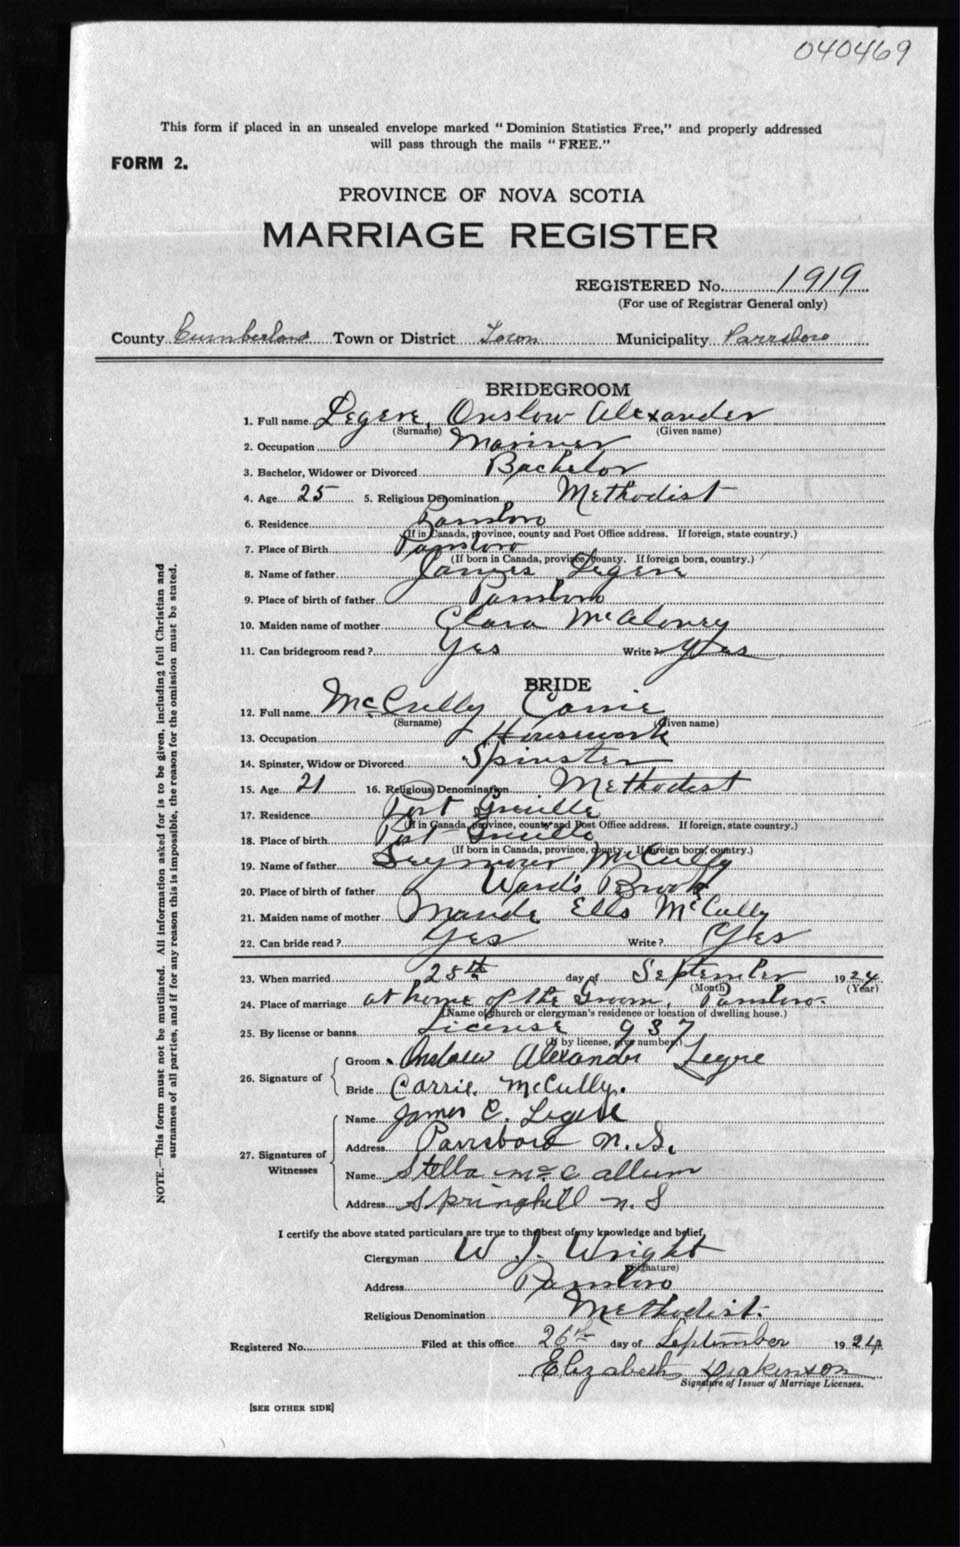 040469
This form if placed in an unsealed envelope marked "Dominion Statistics Free," and properly addressed
will pass through the mails "FREE."
FORM 2.
PROVINCE OF NOVA SCOTIA
MARRIAGE REGISTER
REGISTERED No. 1919
(For use of Registrar General only)
County Cumberland Town or District Town Municipality Parrsboro
BRIDEGROOM
1. Full name Legere, Onslow Alexander
(Surname) (Given name)
2. Occupation Mariner
3. Bachelor, Widower or Divorced Bachelor
4. Age 25 5. Religious Denomination Methodist
6. Residence Parrsboro
(If in Canada, province, county and Post Office address. If foreign, state country.)
7. Place of Birth Parrsboro
(If born in Canada, province, county. If foreign born, country.)
8. Name of father James Legere
9. Place of birth of father Parrsboro
10. Maiden name of mother Clara McAloney
11. Can bridegroom read? Yes Write? Yes
BRIDE
12. Full name McCully Carrie
(Surname) (Given name)
13. Occupation Housework
14. Spinster, Widow or Divorced Spinster
15. Age 21 16. Religious Denomination Methodist
17. Residence Port Greville
(If in Canada, province, county and Post Office address. If foreign, state country.)
18. Place of birth Port Greville
(If born in Canada, province, county. If foreign born, country.)
19. Name of father Seymour McCully
20. Place of birth of father Ward's Brook
21. Maiden name of mother Maude Ells McCully
22. Can bride read? Yes Write? Yes
23. When married 25th day of September 1924
(Month) (Year)
24. Place of marriage at home of the Groom, Parrsboro.
(Name of church or clergyman's residence or location of dwelling house.)
25. By license or banns License 937
(If by license, give number.)
26. Signature of
Groom Alexander Legere
Bride Carrie McCully.
27. Signatures of Witnesses
Name James E. Legere
Address Parrsboro N.S.
Name Stella McCallum
Address Springhill N.S
I certify the above stated particulars are true to the best of my knowledge and belief,
Clergyman W J. Wright
(Signature)
Address Parrsboro
Religious Denomination Methodist.
Registered No. Filed at this office 26th day of September 1924
Elizabeth
Signature of Issuer of Marriage Licenses.
[SEE OTHER SIDE]
NOTE.—This form must not be mutilated. All information asked for is to be given, including full Christian and
surnames of all parties, and if for any reason this is impossible, the reason for the omission must be stated.